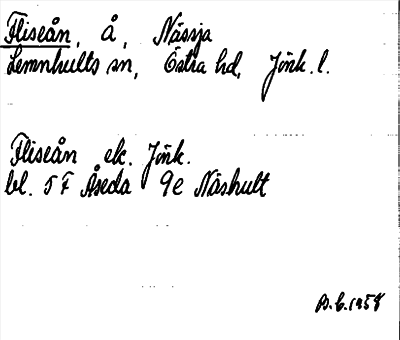 Fliseån, å, Nässja
Lemnhults sn, Östra hd, Jönk. l.
Fliseån ek. Jönk.
bl. 5F Åseda 9e Näshult
B.E. 1958